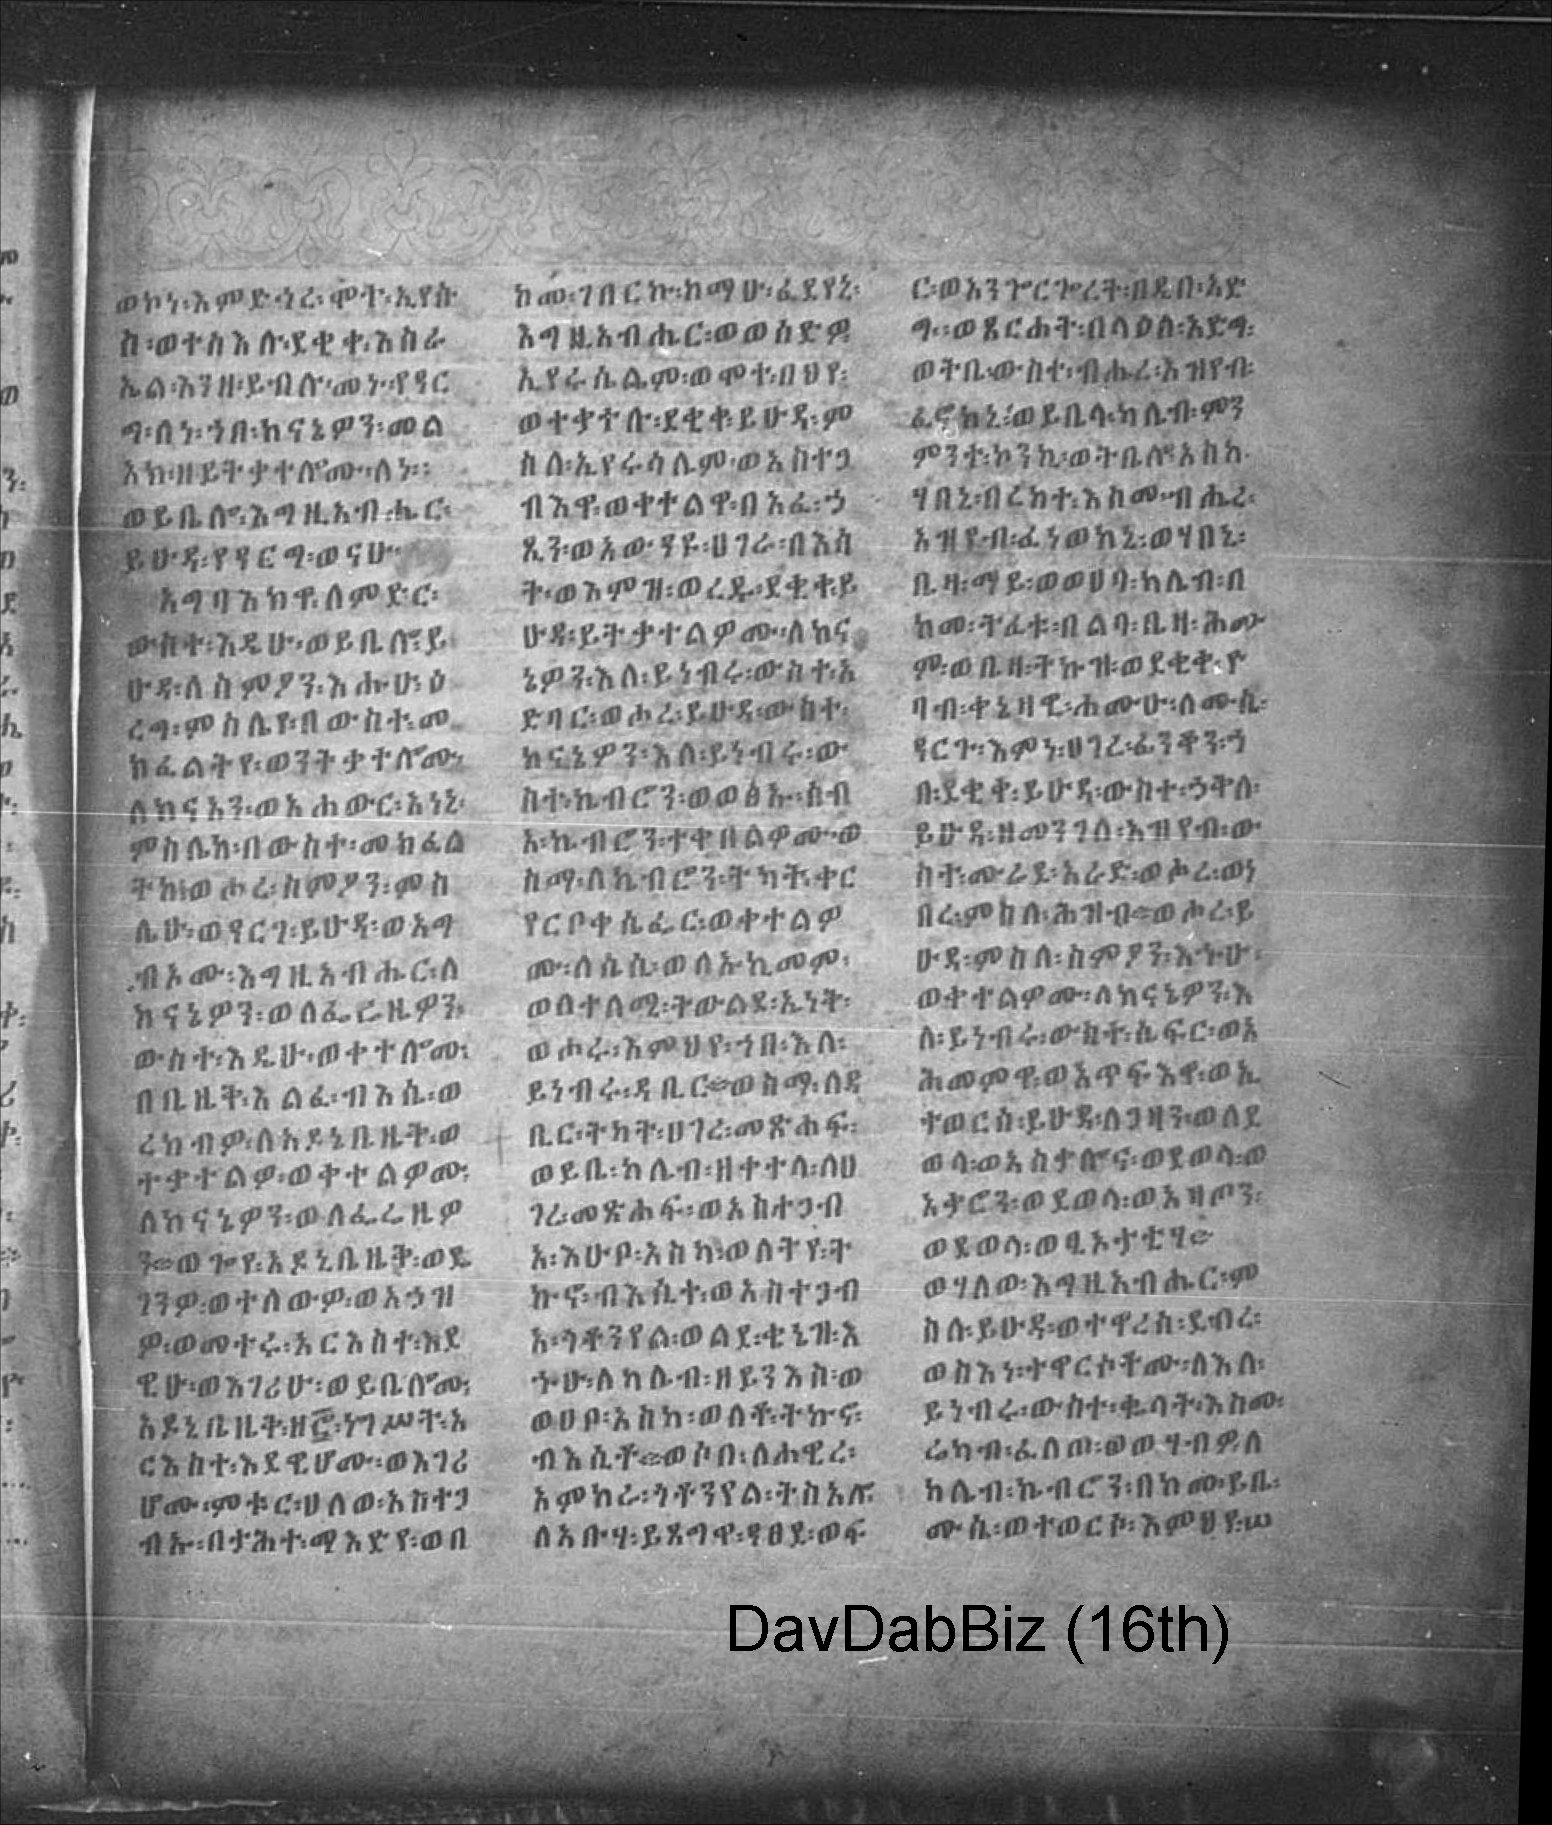 ወኮነ፡እምድኅረ፡ሞተ፡ኢየሱ
ስ፡ወተስእሉ፡ደቂቀ፡እስራ
ኤል፡እንዘ፡ይብሉ፡መኑ፡የዓር
ግ፡ለነ፡ኀበ፡ከናኔዎን፡መል
አከ፡ዘይትቃተሎሙ፡ለነ፡
ወይቤሎ፡እግዚአብሔር፡
ይሁዳ፡የዓርግ፡ወናሁ
አግባእክዋ፡ለምድር፡
ውስተ፡እዴሁ፡ወይቤሎ፡ይ
ሁዳ፡ለስምዖን፡እኁሁ፡ዕ
ረግ፡ምስሌየ፡በውስተ፡መ
ክፈልትየ፡ወንትቃተሎሙ፡
ለከናአን፡ወአሐውር፡አነኒ፡
ምስሌከ፡በውስተ፡መክፈል
ትከ፡ወሖረ፡ስምዖን፡ምስ
ሌሁ፡ወዓርገ፡ይሁዳ፡ወአግ
ብኦሙ፡እግዚአብሔር፡ለ
ከናኔዎን፡ወለፌሬዜዎን፡
ውስተ፡እዴሁ፡ወቀተሎሙ፡
በቤዜት፡እልፈ፡ብእሴ፡ወ
ረከብዎ፡ለአዶኒቤዜት፡ወ
ተቃተልዎ፡ወቀተልዎሙ፡
ለከናኔዎን፡ወለፌሬዜዎ
ን፡ወጐየ፡አዶኒቤዜት፡ወዴ
ገንዎ፡ወተለውዎ፡ወአኃዝ
ዎ፡ወመተሩ፡አርእስተ፡እደ
ዊሁ፡ወእገሪሁ፡ወይቤሎሙ፡
አዶኒቤዜት፡ዘ፸፡ነገሥት፡አ
ርእስተ፡እደዊሆሙ፡ወእገሪ
ሆሙ፡ምቱር፡ሀለወ፡አስተጋ
ብኡ፡በታሕተ፡ማእድየ፡ወበ
ከመ፡ገበርኩ፡ከማሁ፡ፈደየኒ፡
እግዚአብሔር፡ወወሰድዎ
ኢየሩሳሌም፡ወሞተ፡በህየ፡
ወተቃተሉ፡ደቂቀ፡ይሁዳ፡ም
ስለ፡ኢየሩሳሌም፡ወአስተጋ
ብእዋ፡ወቀተልዋ፡በአፈ፡ኃ
ጺን፡ወአውዓዩ፡ሀገራ፡በእሳ
ት፡ወእምዝ፡ወረዱ፡ደቂቀ፡ይ
ሁዳ፡ይትቃተልዎሙ፡ለከና
ኔዎን፡እለ፡ይነብሩ፡ውስተ፡አ
ድባር፡ወሖረ፡ይሁዳ፡ውስተ፡
ከናኔዎን፡እለ፡ይነብሩ፡ው
ስተ፡ኬብሮን፡ወወፅኡ፡ሰብ
አ፡ኬብሮን፡ተቀበልዎሙ፡ወ
ስማ፡ለኬብሮን፡ትካት፡ቀር
የርቦቀሴፌር፡ወቀተልዎ
ሙ፡ለሴሲ፡ወለኡኪመም፡
ወለተለሚ፡ትውልደ፡ኤነት፡
ወሖሩ፡እምህየ፡ኀበ፡እለ፡
ይነብሩ፡ዳቤር፡ወስማ፡ለዳ
ቤር፡ትካት፡ሀገረ፡መጽሐፍ፡
ወይቤ፡ካሌብ፡ዘቀተላ፡ለሀ
ገረ፡መጽሐፍ፡ወአስተጋብ
አ፡እሁቦ፡አስካ፡ወለትየ፡ት
ኩኖ፡ብእሲተ፡ወአስተጋብ
አ፡ጎቶንየል፡ወልደ፡ቄኔዝ፡እ
ኁሁ፡ለካሌብ፡ዘይንእስ፡ወ
ወሀቦ፡አስካ፡ወለቶ፡ትኩኖ፡
ብእሲቶ፡ወሶበ፡ለሐዊረ፡
አምከራ፡ጎቶንየል፡ትስአሎ
ለአቡሃ፡ይጸግዋ፡ዓፀደ፡ወፍ
ር፡ወአንጐርጐረት፡በዲበ፡አድ
ግ፡ወጸርሐት፡በላዕለ፡አድግ፡
ወትቤ፡ውስተ፡ብሔረ፡አዝየብ፡
ፈኖከኒ፡ወይቤላ፡ካሌብ፡ምን
ምንተ፡ኮንኪ፡ወትቤሎ፡አስከ
ሃበኒ፡በረከተ፡እስመ፡ብሔረ፡
አዝየብ፡ፈነወከኒ፡ወሃበኒ፡
ቤዛ፡ማይ፡ወወሀባ፡ካሌብ፡በ
ከመ፡ትፈቱ፡በልባ፡ቤዛ፡ሕመ
ም፡ወቤዛ፡ትኩዝ፡ወደቂቀ፡ዮ
ባብ፡ቀኔዛዊ፡ሐሙሁ፡ለሙሴ፡
ዓርጉ፡እምነ፡ሀገረ፡ፊንቆን፡ኀ
በ፡ደቂቀ፡ይሁዳ፡ውስተ፡ኃቅለ፡
ይሁዳ፡ዘመንገለ፡አዝየብ፡ው
ስተ፡ሙራደ፡አራድ፡ወሖረ፡ወነ
በረ፡ምስለ፡ሕዝብ፡ወሖረ፡ይ
ሁዳ፡ምስለ፡ስምዖን፡እኁሁ፡
ወቀተልዎሙ፡ለከናኔዎን፡እ
ለ፡ይነብሩ፡ውስተ፡ሴፍር፡ወአ
ሕመምዋ፡ወአጥፍእዋ፡ወኢ
ተወርሰ፡ይሁዳ፡ለጋዛን፡ወለደ
ወላ፡ወአስታሎና፡ወደወላ፡ወ
አቃሮን፡ወደወላ፡ወአዛጦን፡
ወደወላ፡ወዒኦታቲሃ፡
ወሃለወ፡እግዚአብሔር፡ም
ስለ፡ይሁዳ፡ወተዋረሰ፡ደብረ፡
ወስእነ፡ተዋርሶቶሙ፡ለእለ፡
ይነብሩ፡ውስተ፡ቈላት፡እስመ፡
ሬካብ፡ፈለጦ፡ወወሃብዎ፡ለ
ካሌብ፡ኬብሮን፡በከመ፡ይቤ፡
ሙሴ፡ወተወርሶ፡እምህየ፡ሠ
DavDabBiz (16th)